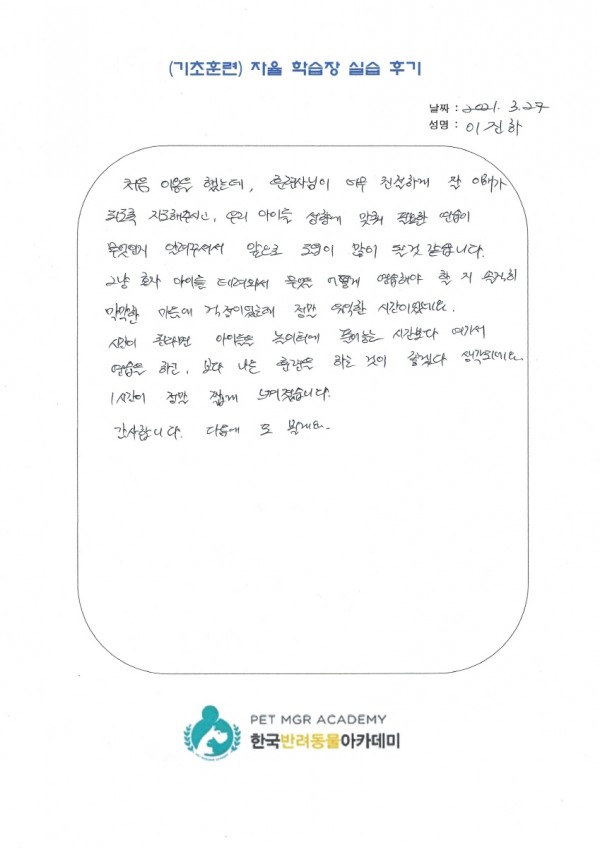 (기초훈련) 자율 학습장 실습 후기
날짜 : 2021. 3. 27
성명 : 이진하
처음 이용을 했는데, 훈련사님이 너무 친절하게 잘 이해가
되도록 지도해주시고, 우리 아이들 성향에 맞춰 필요한 연습이
무엇인지 알려주셔서 앞으로 도움이 많이 될 것 같습니다.
그냥 혼자 아이들 데려와서 무엇을 어떻게 연습해야 할 지 솔직히
막막한 마음에 걱정이었는데 정말 유익한 시간이었네요.
시간이 된다면 아이들은 놀이터에 풀어놓는 시간보다 여기서
연습을 하고, 보다 나은 훈련을 하는 것이 좋겠다 생각되네요.
1시간이 정말 짧게 느껴졌습니다.
감사합니다. 다음에 또 뵐게요.
PET MGR ACADEMY
한국반려동물아카데미